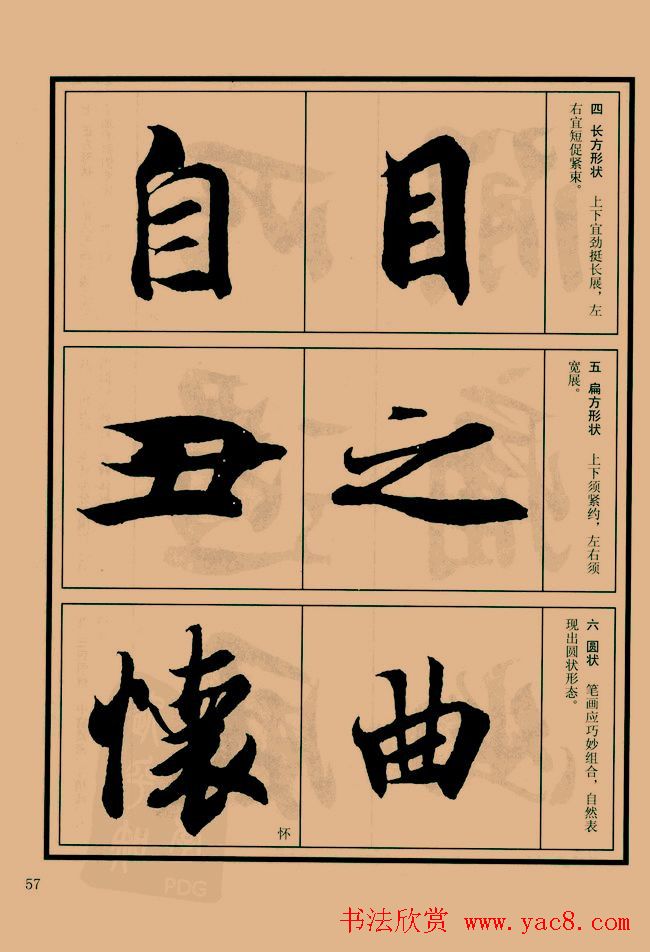 四 长方形状 上下宜劲挺长展，左
右宜短促紧束。
目
自
五 扁方形状 上下须紧约，左右须
宽展。
之
丑
六 圆状 笔画应巧妙组合，自然表
现出圆状形态。
曲
懷
怀
57
PDG
书法欣赏 www.yac8.com